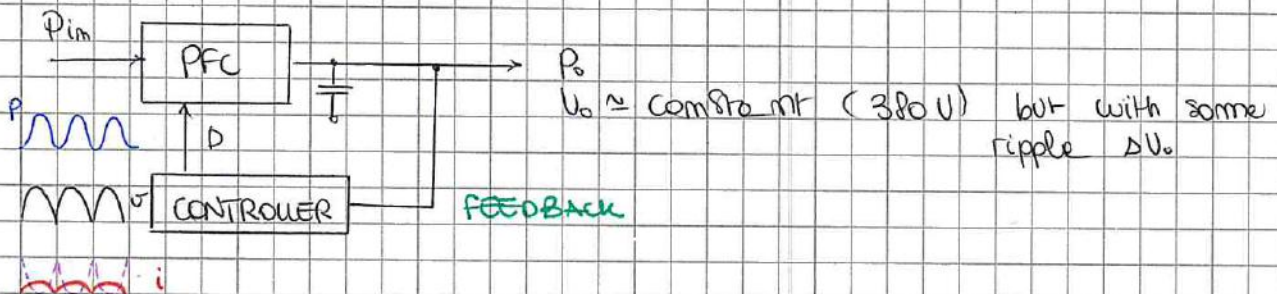 Pin
PFC
Po
Uo ≃ constant (380V) but with some
ripple ΔUo
P
D
v
CONTROLLER
FEEDBACK
i